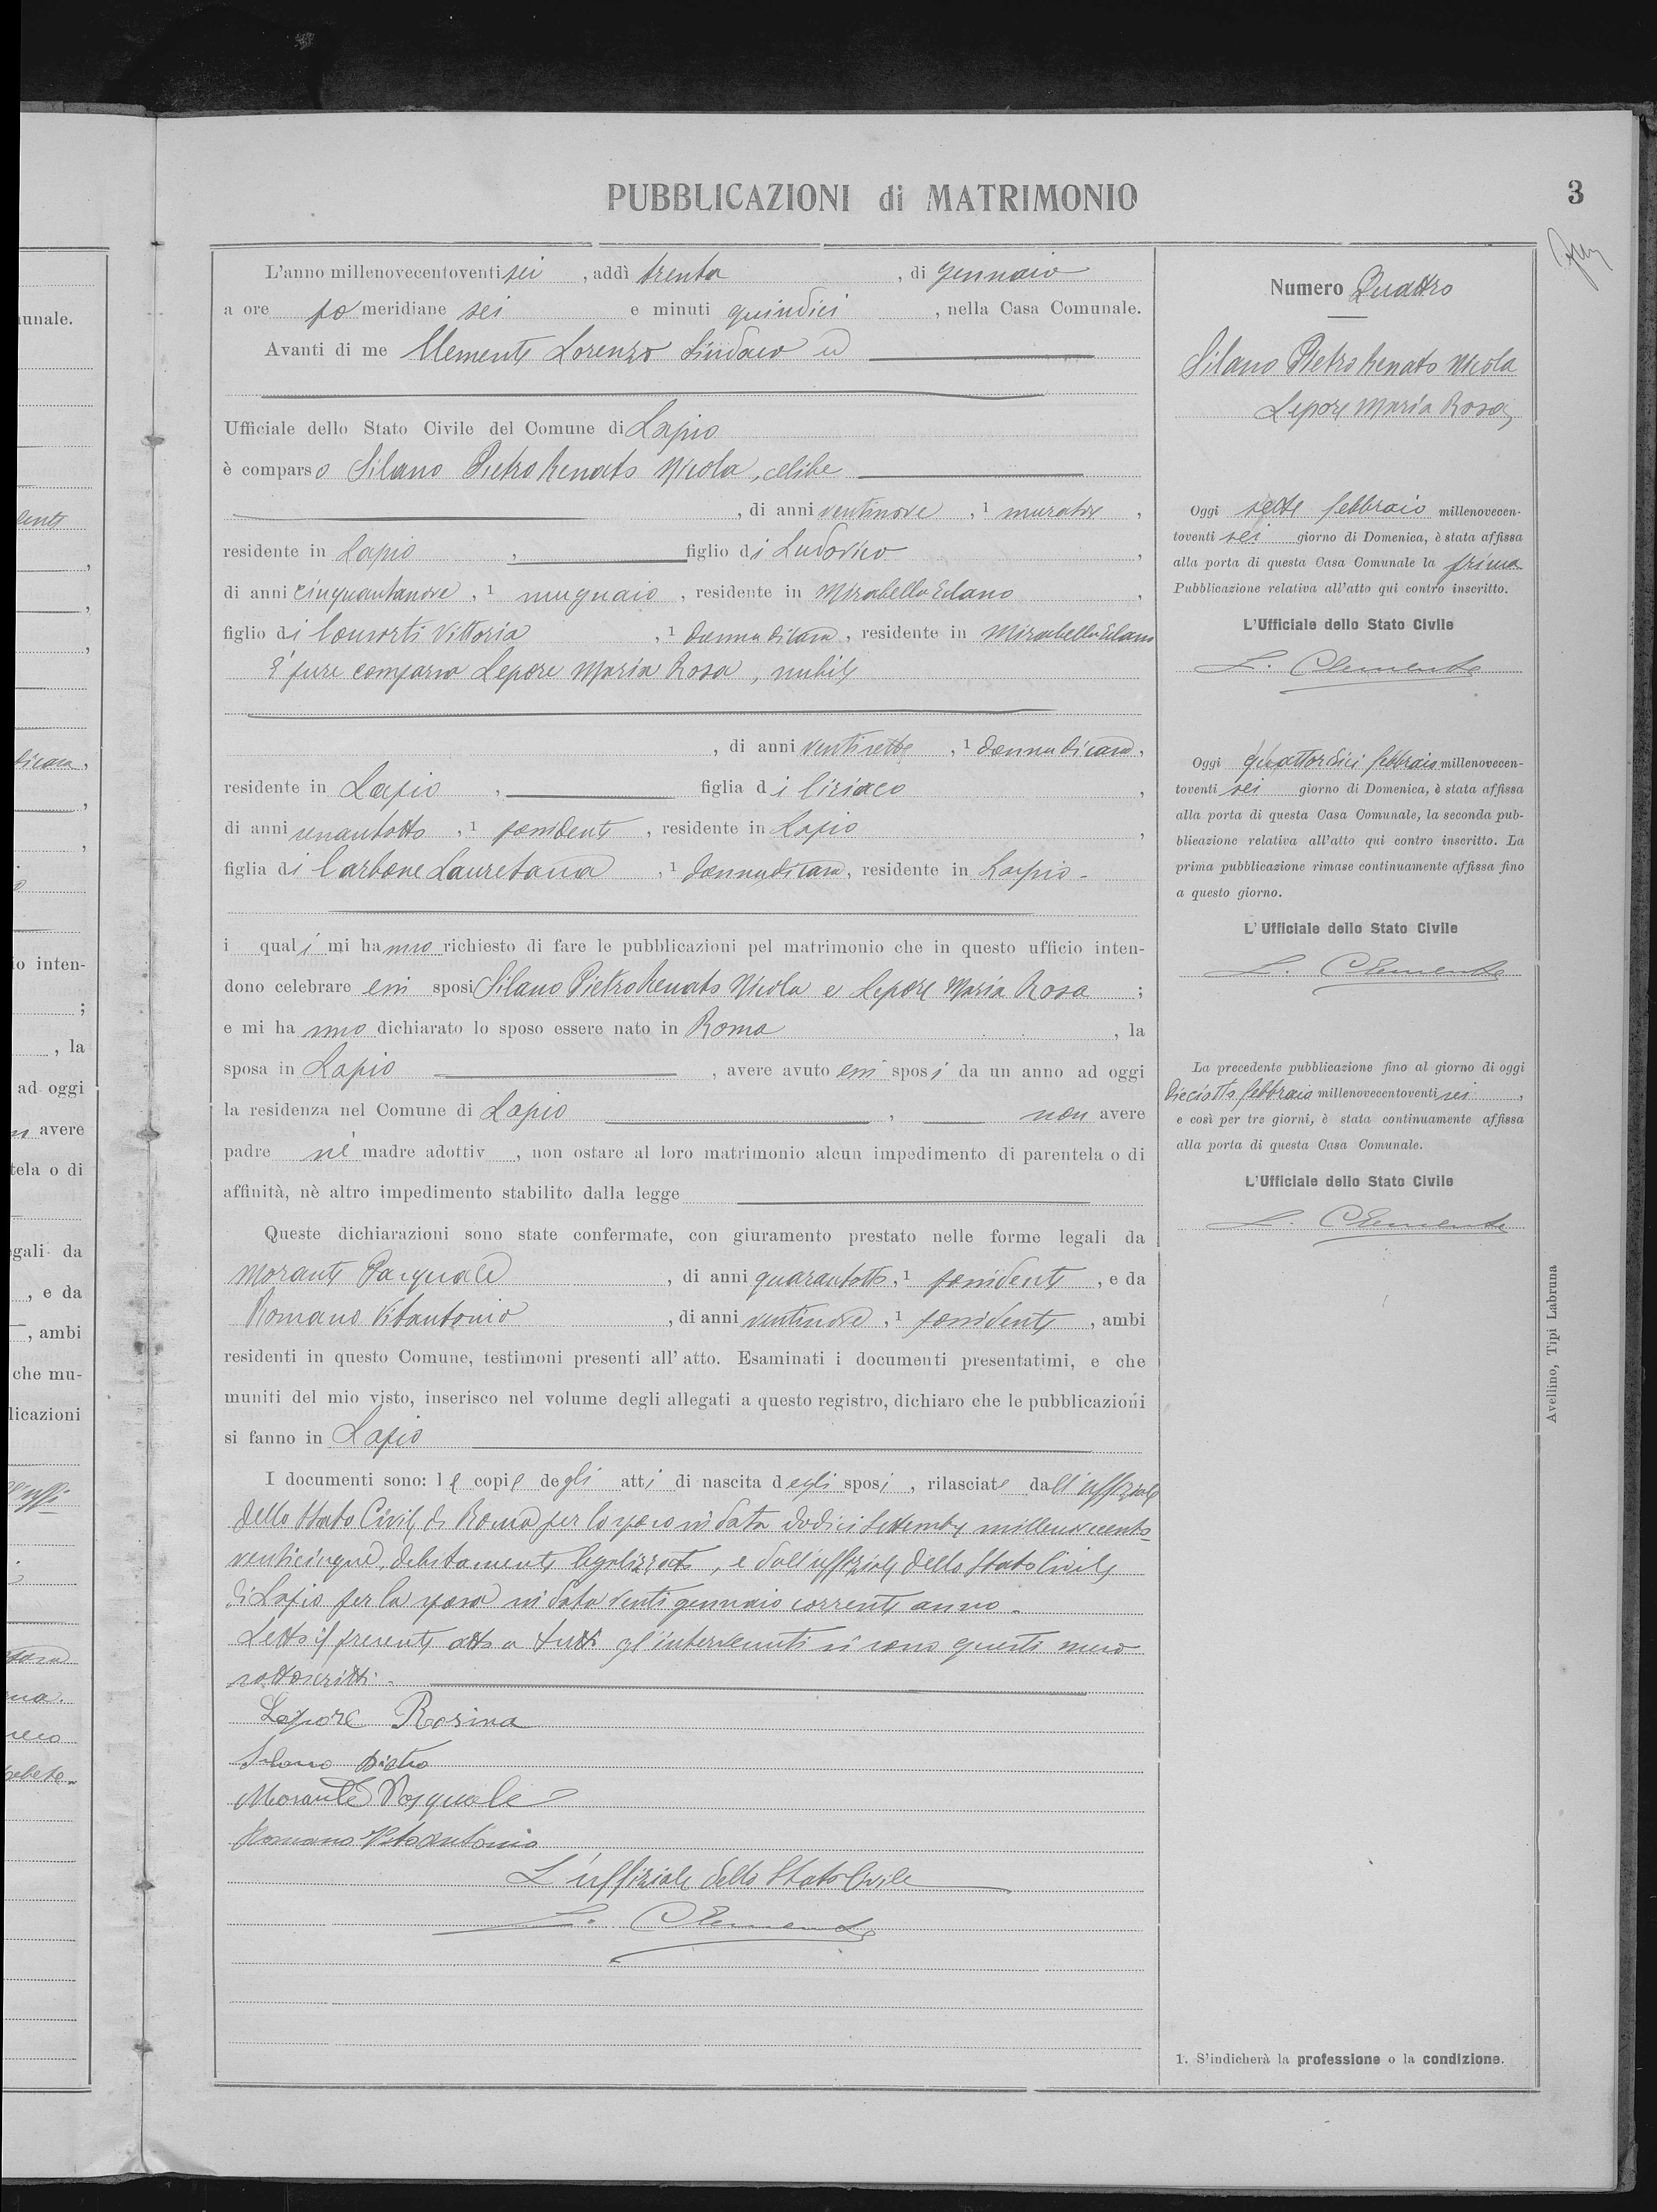 PUBBLICAZIONI di MATRIMONIO
3
L'anno millenovecentoventi sei, addì trenta, di gennaio
a ore po meridiane sei e minuti quindici, nella Casa Comunale.
Avanti di me Clemente Lorenzo Sindaco ed
Ufficiale dello Stato Civile del Comune di Lapio
è comparso Silano Pietro Renato Nicola, celibe
, di anni ventinove, 1 muratore,
residente in Lapio, figlio di Ludovico,
di anni cinquantanove, 1 mugnaio, residente in Mirabella Eclano,
figlio di Consorti Vittoria, 1 donna di casa, residente in Mirabella Eclano
E' pure comparsa Lepore Maria Rosa, nubile
, di anni ventisette, 1 donna di casa,
residente in Lapio, figlia di Ciriaco,
di anni sessantotto, 1 possidente, residente in Lapio,
figlia di Carbone Lauretana, 1 donna di casa, residente in Lapio.
i quali mi hanno richiesto di fare le pubblicazioni pel matrimonio che in questo ufficio inten-
dono celebrare essi sposi Silano Pietro Renato Nicola e Lepore Maria Rosa;
e mi hanno dichiarato lo sposo essere nato in Roma, la
sposa in Lapio, avere avuto essi sposi da un anno ad oggi
la residenza nel Comune di Lapio, non avere
padre nè madre adottiv, non ostare al loro matrimonio alcun impedimento di parentela o di
affinità, nè altro impedimento stabilito dalla legge
Queste dichiarazioni sono state confermate, con giuramento prestato nelle forme legali da
Morante Pasquale, di anni quarantotto, 1 possidente, e da
Romano Vitantonio, di anni ventinove, 1 possidente, ambi
residenti in questo Comune, testimoni presenti all'atto. Esaminati i documenti presentatimi, e che
muniti del mio visto, inserisco nel volume degli allegati a questo registro, dichiaro che le pubblicazioni
si fanno in Lapio
I documenti sono: le copie degli atti di nascita degli sposi, rilasciate dall'uffiziale
dello Stato Civile di Roma per lo sposo in data dodici Settembre millenovecento
venticinque, debitamente legalizzato, e dall'uffiziale dello Stato Civile
di Lapio per la sposa in data venti gennaio corrente anno.
Letto il presente atto a tutti gl'intervenuti si sono questi meco
sottoscritti.
Lepore Rosina
Silano Pietro
Morante Pasquale
Romano Vitantonio
L'uffiziale dello Stato Civile
L. Clemente
Numero Quattro
Silano Pietro Renato Nicola
Lepore Maria Rosa
Oggi sette febbraio millenovecen-
toventi sei giorno di Domenica, è stata affissa
alla porta di questa Casa Comunale la prima
Pubblicazione relativa all'atto qui contro inscritto.
L'Ufficiale dello Stato Civile
L. Clemente
Oggi quattordici febbraio millenovecen-
toventi sei giorno di Domenica, è stata affissa
alla porta di questa Casa Comunale, la seconda pub-
blicazione relativa all'atto qui contro inscritto. La
prima pubblicazione rimase continuamente affissa fino
a questo giorno.
L'Ufficiale dello Stato Civile
L. Clemente
La precedente pubblicazione fino al giorno di oggi
diciotto febbraio millenovecentoventi sei,
e così per tre giorni, è stata continuamente affissa
alla porta di questa Casa Comunale.
L'Ufficiale dello Stato Civile
L. Clemente
1. S'indicherà la professione o la condizione.
Avellino, Tipi Labruna